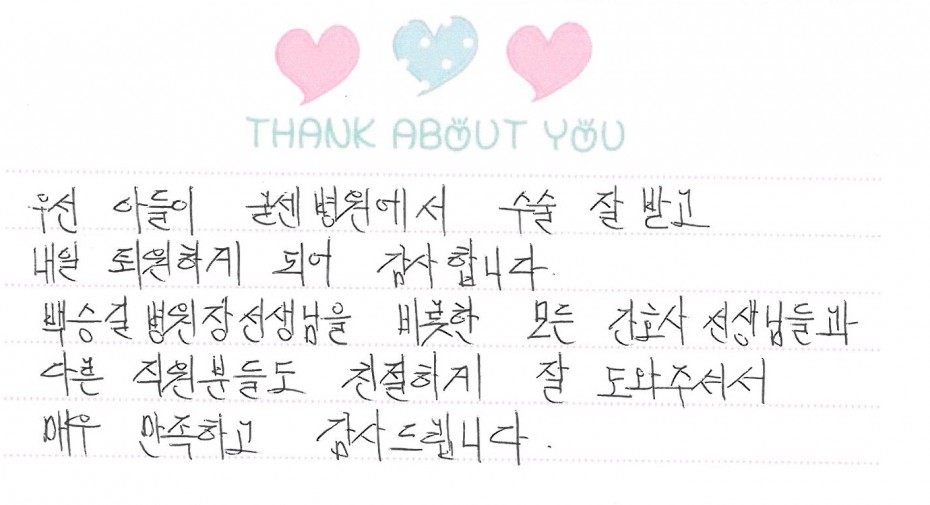 THANK ABOUT YOU
우선 아들이 굳센병원에서 수술 잘 받고
내일 퇴원하게 되어 감사합니다.
백승걸 병원장선생님을 비롯한 모든 간호사 선생님들과
다른 직원분들도 친절하게 잘 도와주셔서
매우 만족하고 감사드립니다.